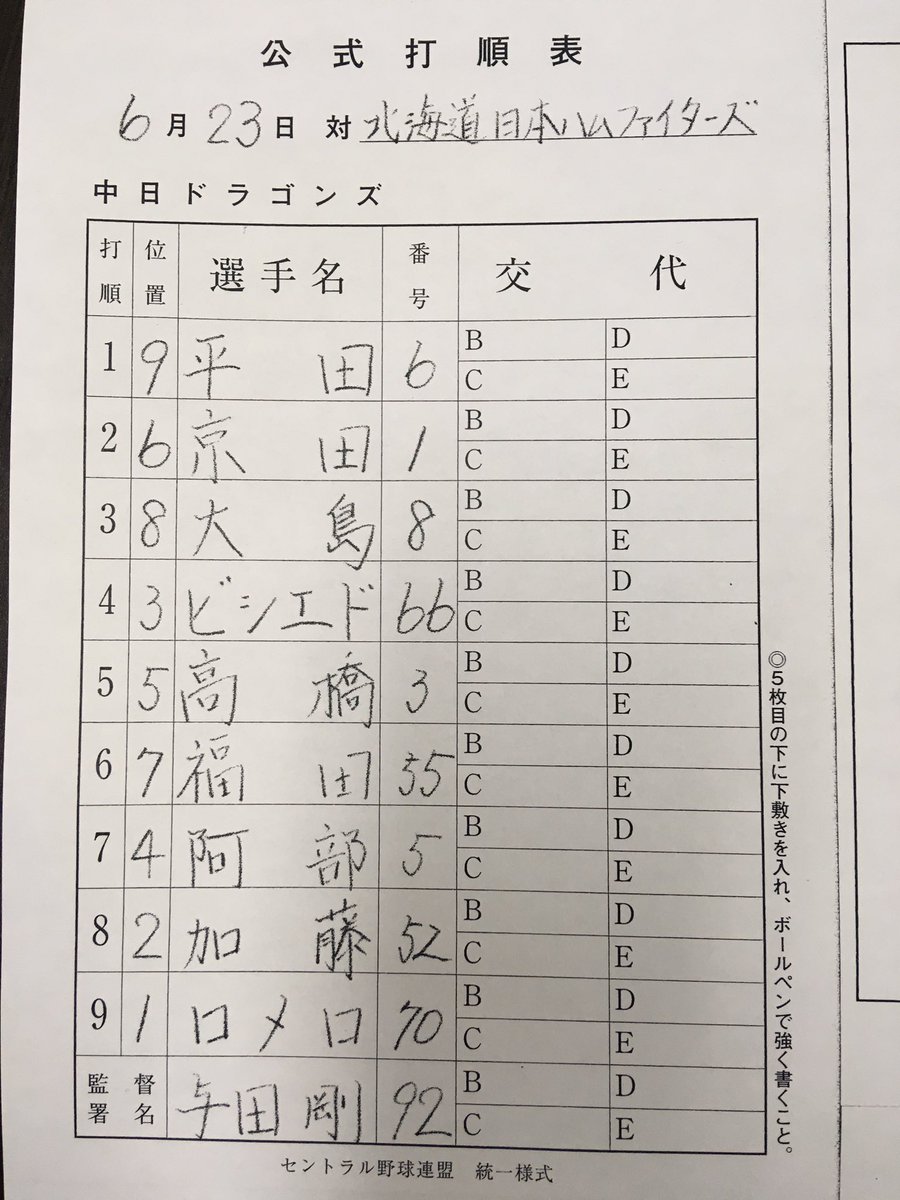 公式打順表
6月23日 対 北海道日本ハムファイターズ
中日ドラゴンズ
打順 位置 選手名 番号 交代
1 9 平田 6 B D C E
2 6 京田 1 B D C E
3 8 大島 8 B D C E
4 3 ビシエド 66 B D C E
5 5 高橋 3 B D C E
6 7 福田 55 B D C E
7 4 阿部 5 B D C E
8 2 加藤 52 B D C E
9 1 ロメロ 70 B D C E
監督署名 与田剛 92 B D C E
セントラル野球連盟 統一様式
◎5枚目の下に下敷きを入れ、ボールペンで強く書くこと。